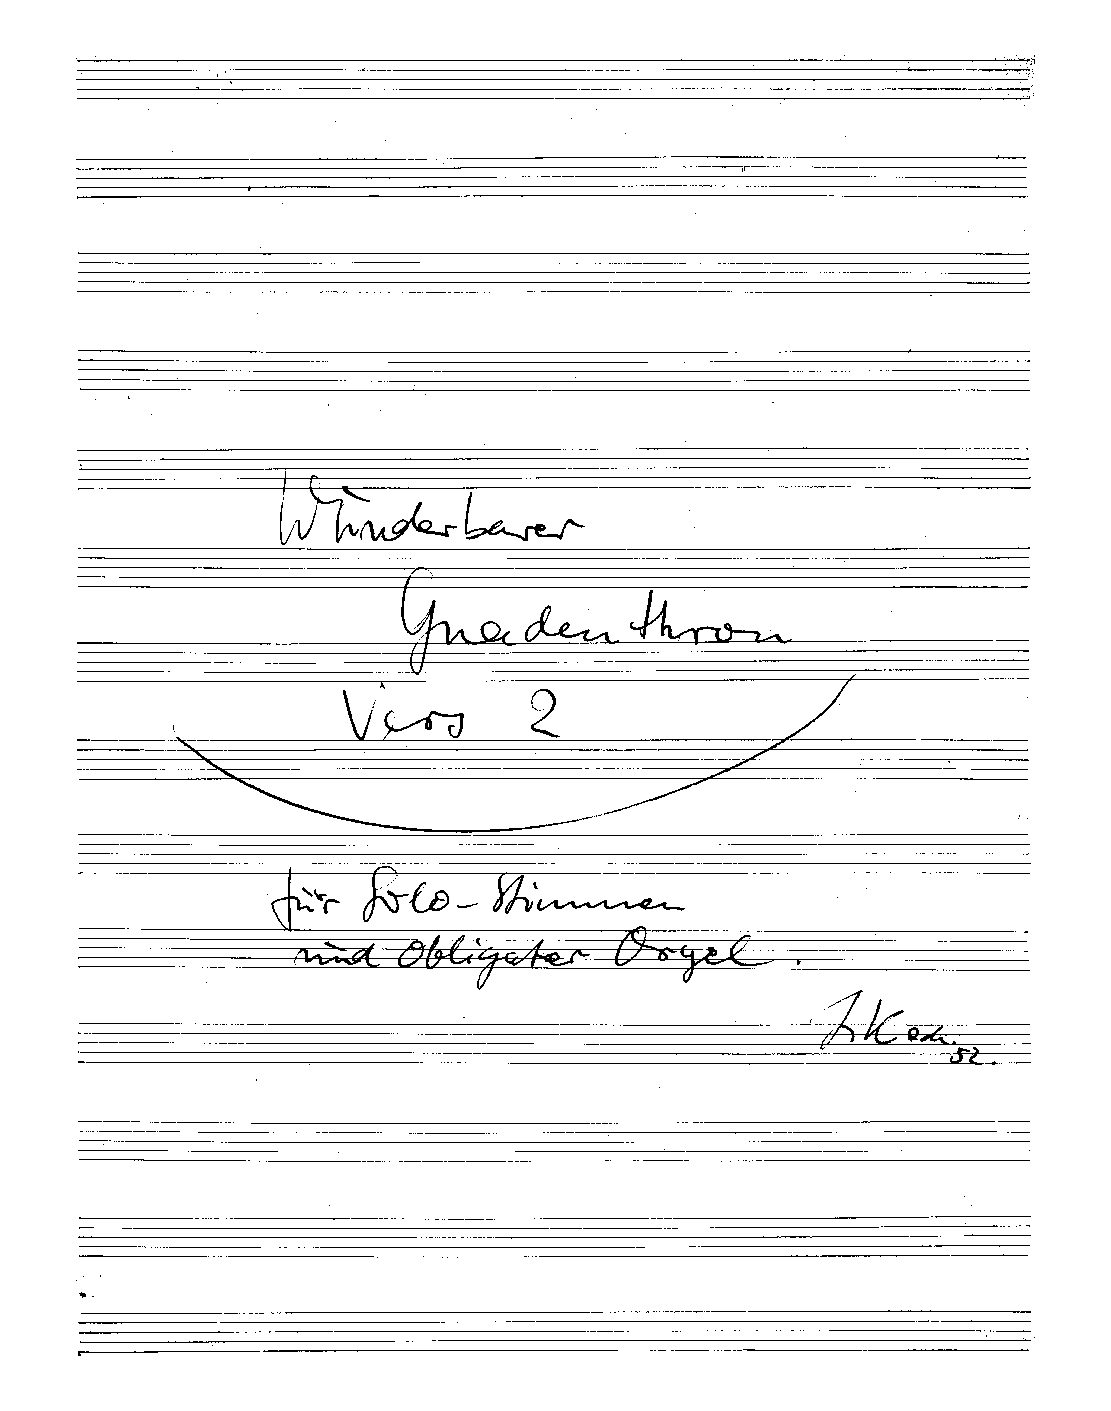 Wunderbarer
Gnadenthron
Vers 2
für Solo-Stimmen
und obligater Orgel.
52.